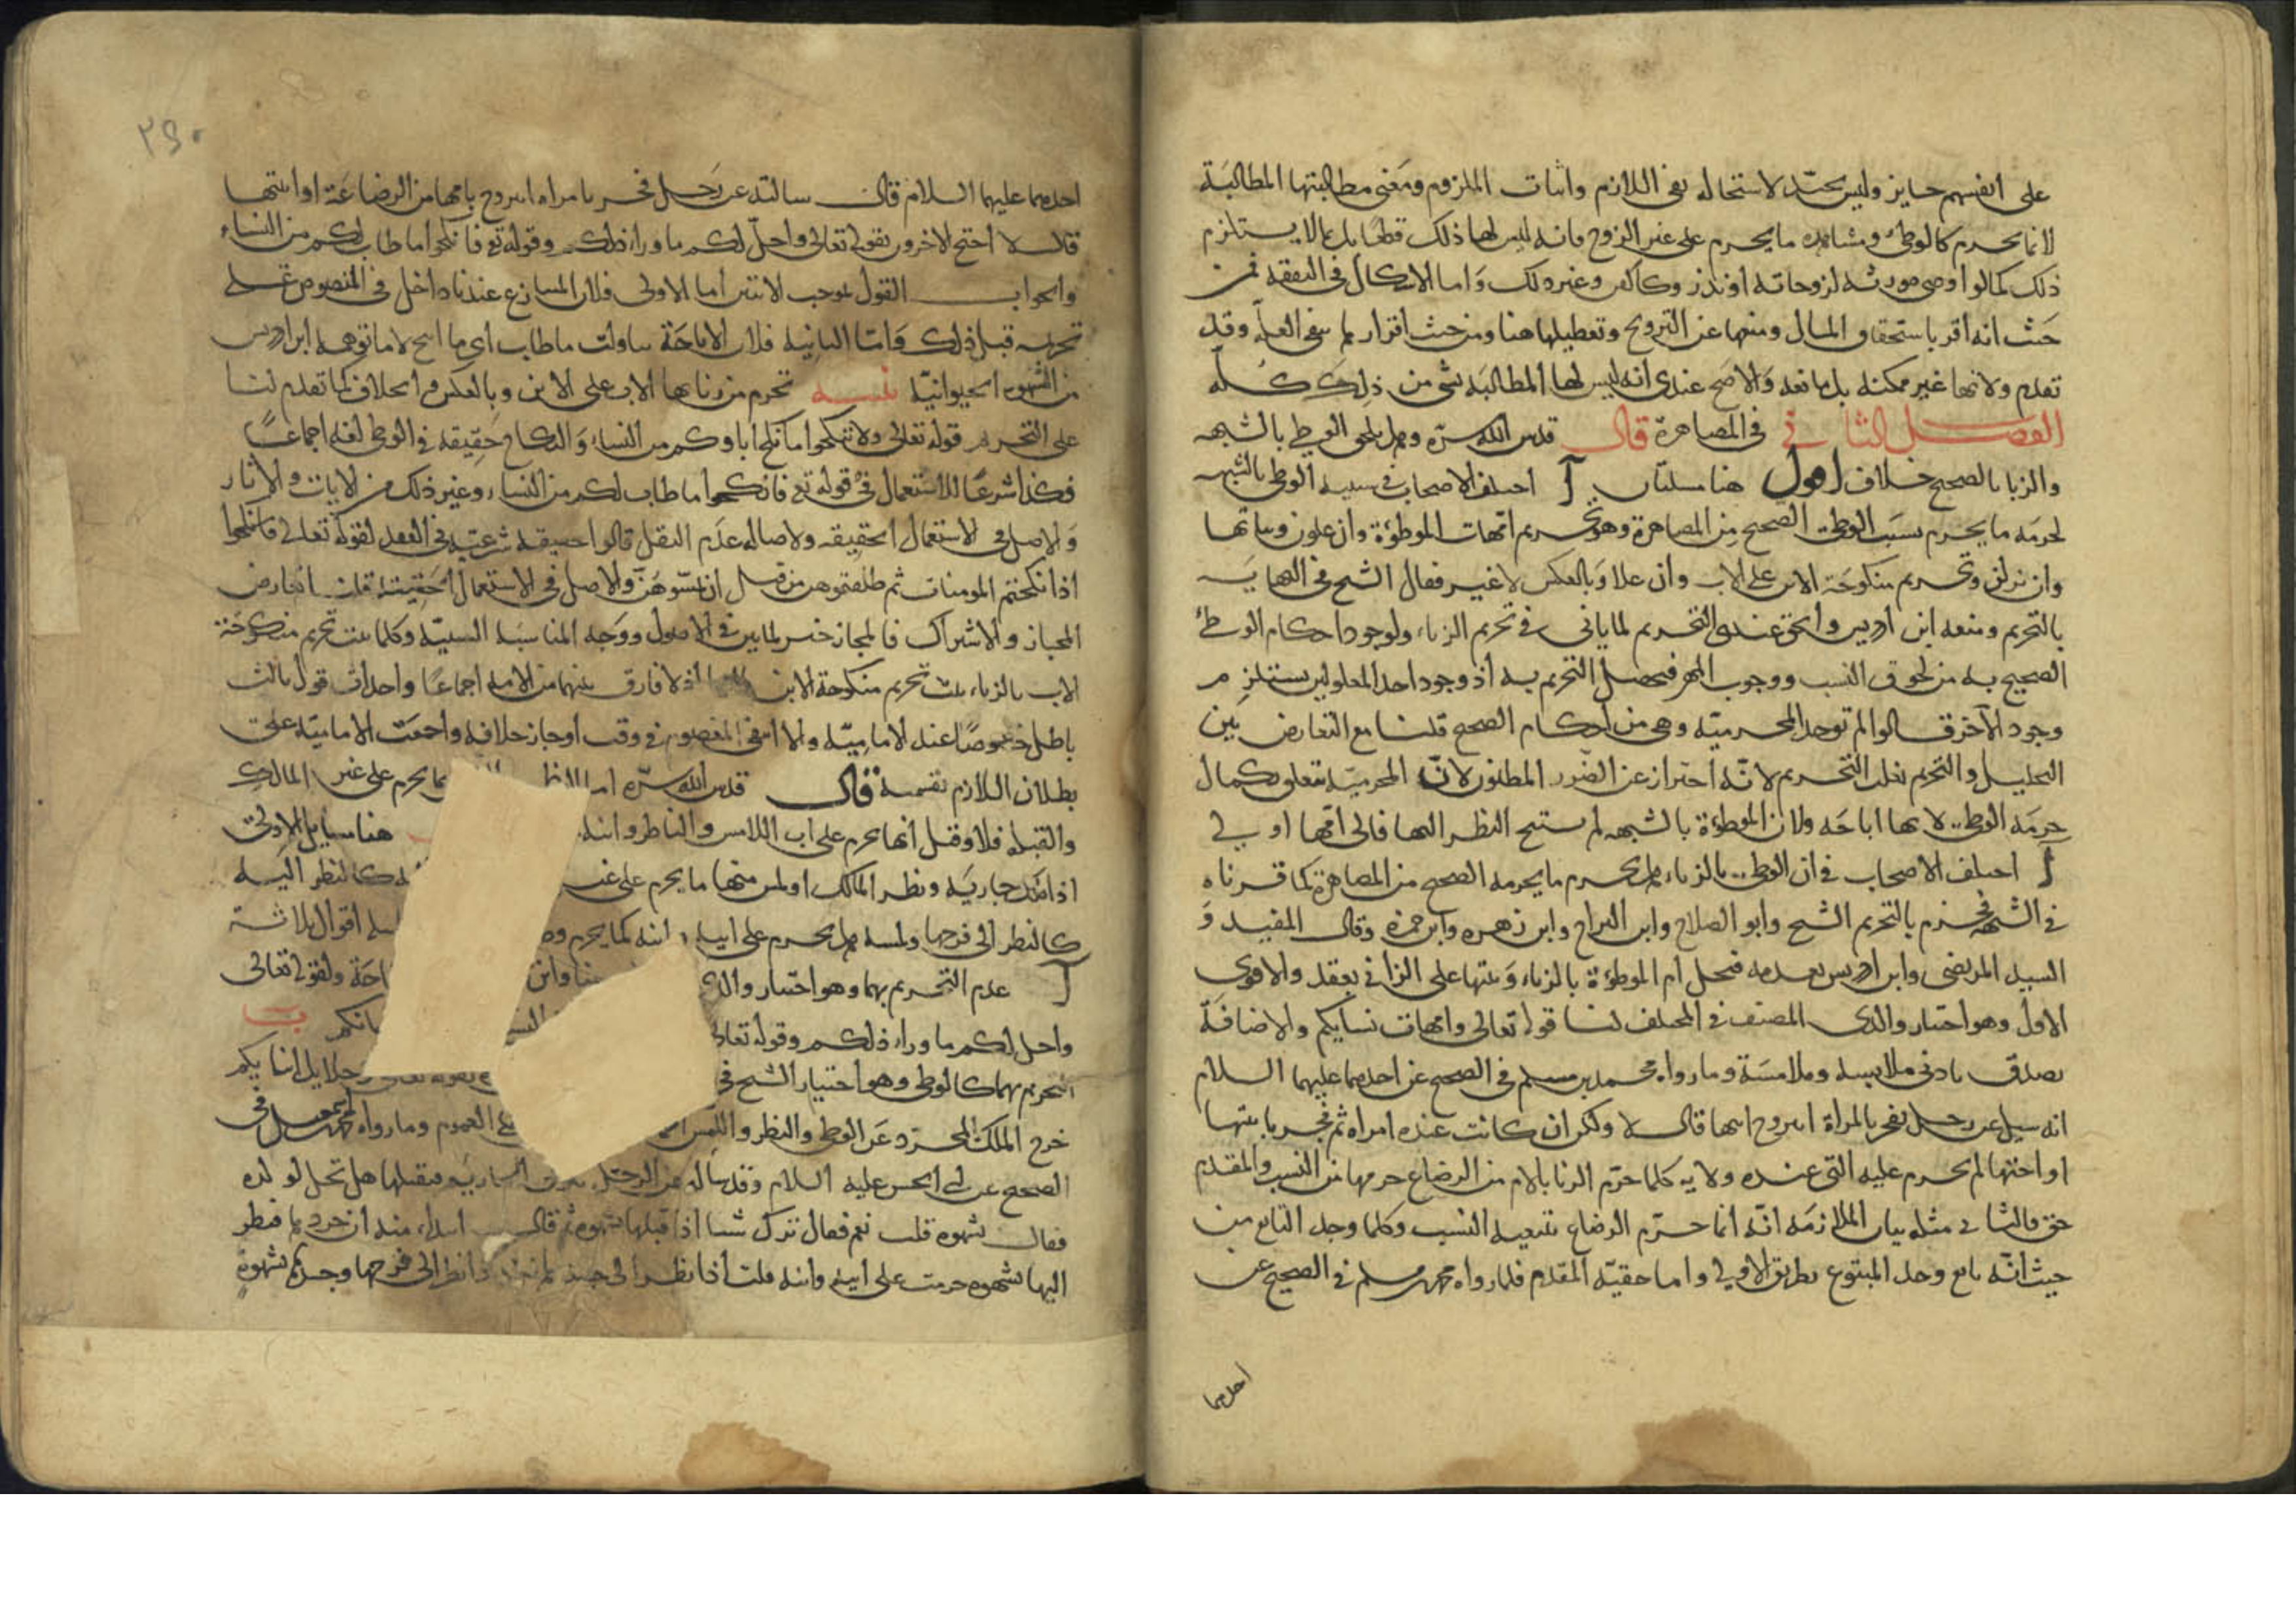 على انفسهم جايز وليس بجيّد لاستحاله نفى اللازم واثبات الملزوم ومعنى مطالبتها المطالبة
لا بما يحرم كالوطئ ومشاهده ما يحرم على غير الزوج فانه ليس لها ذلك قطعًا بل بما لا يستلزم
ذلك كما لو اوصى مورثه لزوجاته او نذر وكالمهر وغير ذلك واما الاشكال فى النفقه فمن
حيث انه اقر باستحقاق المال ومنعها عن التزويج وتعطيلها هنا ومن حيث اقراره بما ينفى العلّه وقد
تقدم ولانها غير ممكنه بل مانعه والاصح عندى انه ليس لها المطالبه بشى من ذلك كله
الفصل الثانى فى المصاهرة قال قدس الله سرّه وهل يلحق الوطى بالشبهه
والزنا بالصحيح خلاف اقول هنا مسئلتان آ اختلف الاصحاب فى سببيه الوطى بالشبهه
لحرمه ما يحرم بسبب الوطى الصحيح من المصاهرة وهو تحريم امّهات الموطؤة وان علون وبناتها
وان نزلن وتحريم منكوحة الابن على الاب وان علا وبالعكس لا غير فقال الشيخ فى النهايه
بالتحريم ومنعه ابن ادريس والحق عندى التحريم لما ياتى فى تحريم الزناء ولوجود احكام الوطئ
الصحيح به من لحوق النسب ووجوب المهر فيحصل التحريم به اذ وجود احد المعلولين يستلزم
وجود الاخر قالوا لم توجد المحرميّه وهى من احكام الصحيح قلنا مع التعارض بين
التحليل والتحريم يغلب التحريم لانّه احتراز عن الضرر المظنون لانّ المحرميّه تتعلق بكمال
حرمة الوطى لانها اباحه ولان الموطؤة بالشبهه لم يستبح النظر اليها فالى امّها اولى
آ اختلف الاصحاب فى ان الوطى بالزناء هل يحرم ما يحرمه الصحيح من المصاهرة كما قررناه
فى الشبهه فجزم بالتحريم الشيخ وابو الصلاح وابن البراج وابن زهره وابن حمزه وقال المفيد و
السيد المرتضى وابن ادريس بعدمه فتحل ام الموطؤة بالزناء وبنتها على الزانى بعقد والاقوى
الاول وهو اختيار والدى المصنف فى المختلف لنا قوله تعالى وامهات نسايكم والاضافة
يصدق بادنى ملابسه وملامسة وما رواه محمد بن مسلم فى الصحيح عن احدهما عليهما السلام
انه سيل عن رجل يفجر بالمراة ايتزوج ابنتها قال لا ولكن ان كانت عنده امراه ثم فجر بابنتها
او اختها لم يحرم عليه التى عنده ولانه كلما حرّم الزنا بالام من الرضاع حرمها من النسب والمقدم
حق فالتالى مثله بيان الملازمة انّه انما حرّم الرضاع بتبعيه النسب وكلما وجد التابع من
حيث انّه تابع وجد المتبوع بطريق الاولى واما حقيّه المقدم فلما رواه محمد بن مسلم فى الصحيح عن
احدهما
٢٩٠
احدهما عليهما السلام قال سالته عن رجل فجر بامراه ايتزوج بامها من الرضاعة او ابنتها
قال لا احتج الاخرون بقوله تعالى واحلّ لكم ما وراء ذلكم وقوله تع فانكحوا ما طاب لكم من النساء
والجواب القول بموجب الاثنين اما الاولى فلان المتنازع عندنا داخل فى المنصوص على
تحريمه قبل ذلك وامّا الثانيه فلان الاباحة تناولت ما طاب اى ما ابيح لا ما توهمه ابن ادريس
من الشهوه الحيوانيّه تنبيه تحرم من زنا بها الاب على الابن وبالعكس والخلاف كما تقدم لنا
على التحريم قوله تعالى ولا تنكحوا ما نكح اباوكم من النساء والنكاح حقيقه فى الوطى لغه اجماعًا
فكذا شرعًا للاستعمال فى قوله تع فانكحوا ما طاب لكم من النساء وغير ذلك من الايات والاثار
والاصل فى الاستعمال الحقيقه ولاصاله عدم النقل قالوا حقيقه شرعيّه فى العقد لقوله تعالى فانكحوا
اذا نكحتم المومنات ثم طلقتموهن من قبل ان تمسّوهنّ والاصل فى الاستعمال الحقيقة قلت اتعارض
المجاز والاشتراك فالمجاز خير لما بين فى الاصول ووجه المناسبه السببيّه وكلما ثبت تحريم منكوحة
الاب بالزناء ثبت تحريم منكوحة الابن اذ لا فارق بينهما من الامه اجماعًا واحداث قول ثالث
باطل خصوصًا عند الاماميّه والا انتفى المعصوم فى وقت او جاز خلافه واجمعت الاماميّه على
بطلان اللازم بقسميه قال قدس الله سرّه اما النظر بما يحرم على غير المالك
والقبله فلا وقيل انها يحرم على اب اللامس والناظر وابنه هنا مسايل الاولى
اذا ملك جاريه ونظر المالك او لمس منها ما يحرم على غير كالنظر اليه
كالنظر الى فرجها ولمسه هل يحرم على ابيه وابنه كما يحرم اقوال ثلاثة
آ عدم التحريم بهما وهو اختيار والدى ولقوله تعالى
واحل لكم ما وراء ذلكم وقوله تعالى ب
التحريم بهما كالوطى وهو اختيار الشيخ فى وحلايل ابنايكم
خرج الملك المجرّد عن الوطى والنظر واللمس العموم وما رواه محمد بن اسمعيل فى
الصحيح عن ابى الحسن عليه السلام وقد ساله عن الرجل الجاريه فيقبلها هل تحل لولده
فقال بشهوه قلت نعم فقال ما ترك شيا اذا قبلها بشهوه ثم قال ابتداء منه ان جردها فنظر
اليها بشهوه حرمت على ابيه وابنه قلت اذا نظر الى جسدها نظر الى فرجها وجسدها بشهوه